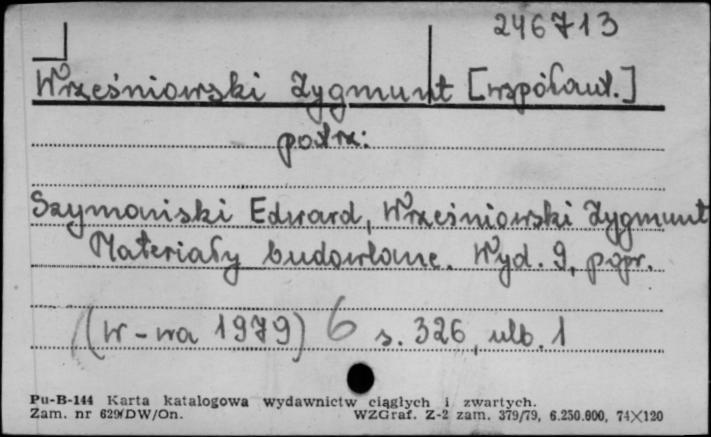 246713
Wrześniowski Zygmunt [współaut.]
patrz:
Szymański Edward, Wrześniowski Zygmunt
Materiały budowlane. Wyd. 9, popr.
(W-wa 1979) 6 s. 326, ulb. 1
Pu-B-144 Karta katalogowa wydawnictw ciągłych i zwartych.
Zam. nr 629/DW/On. WZGraf. Z-2 zam. 379/79, 6.250.000, 74×120